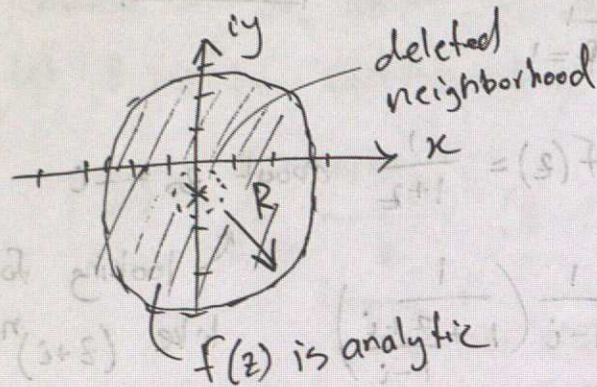 iy
deleted
neighborhood
x
R
f(z) is analytic